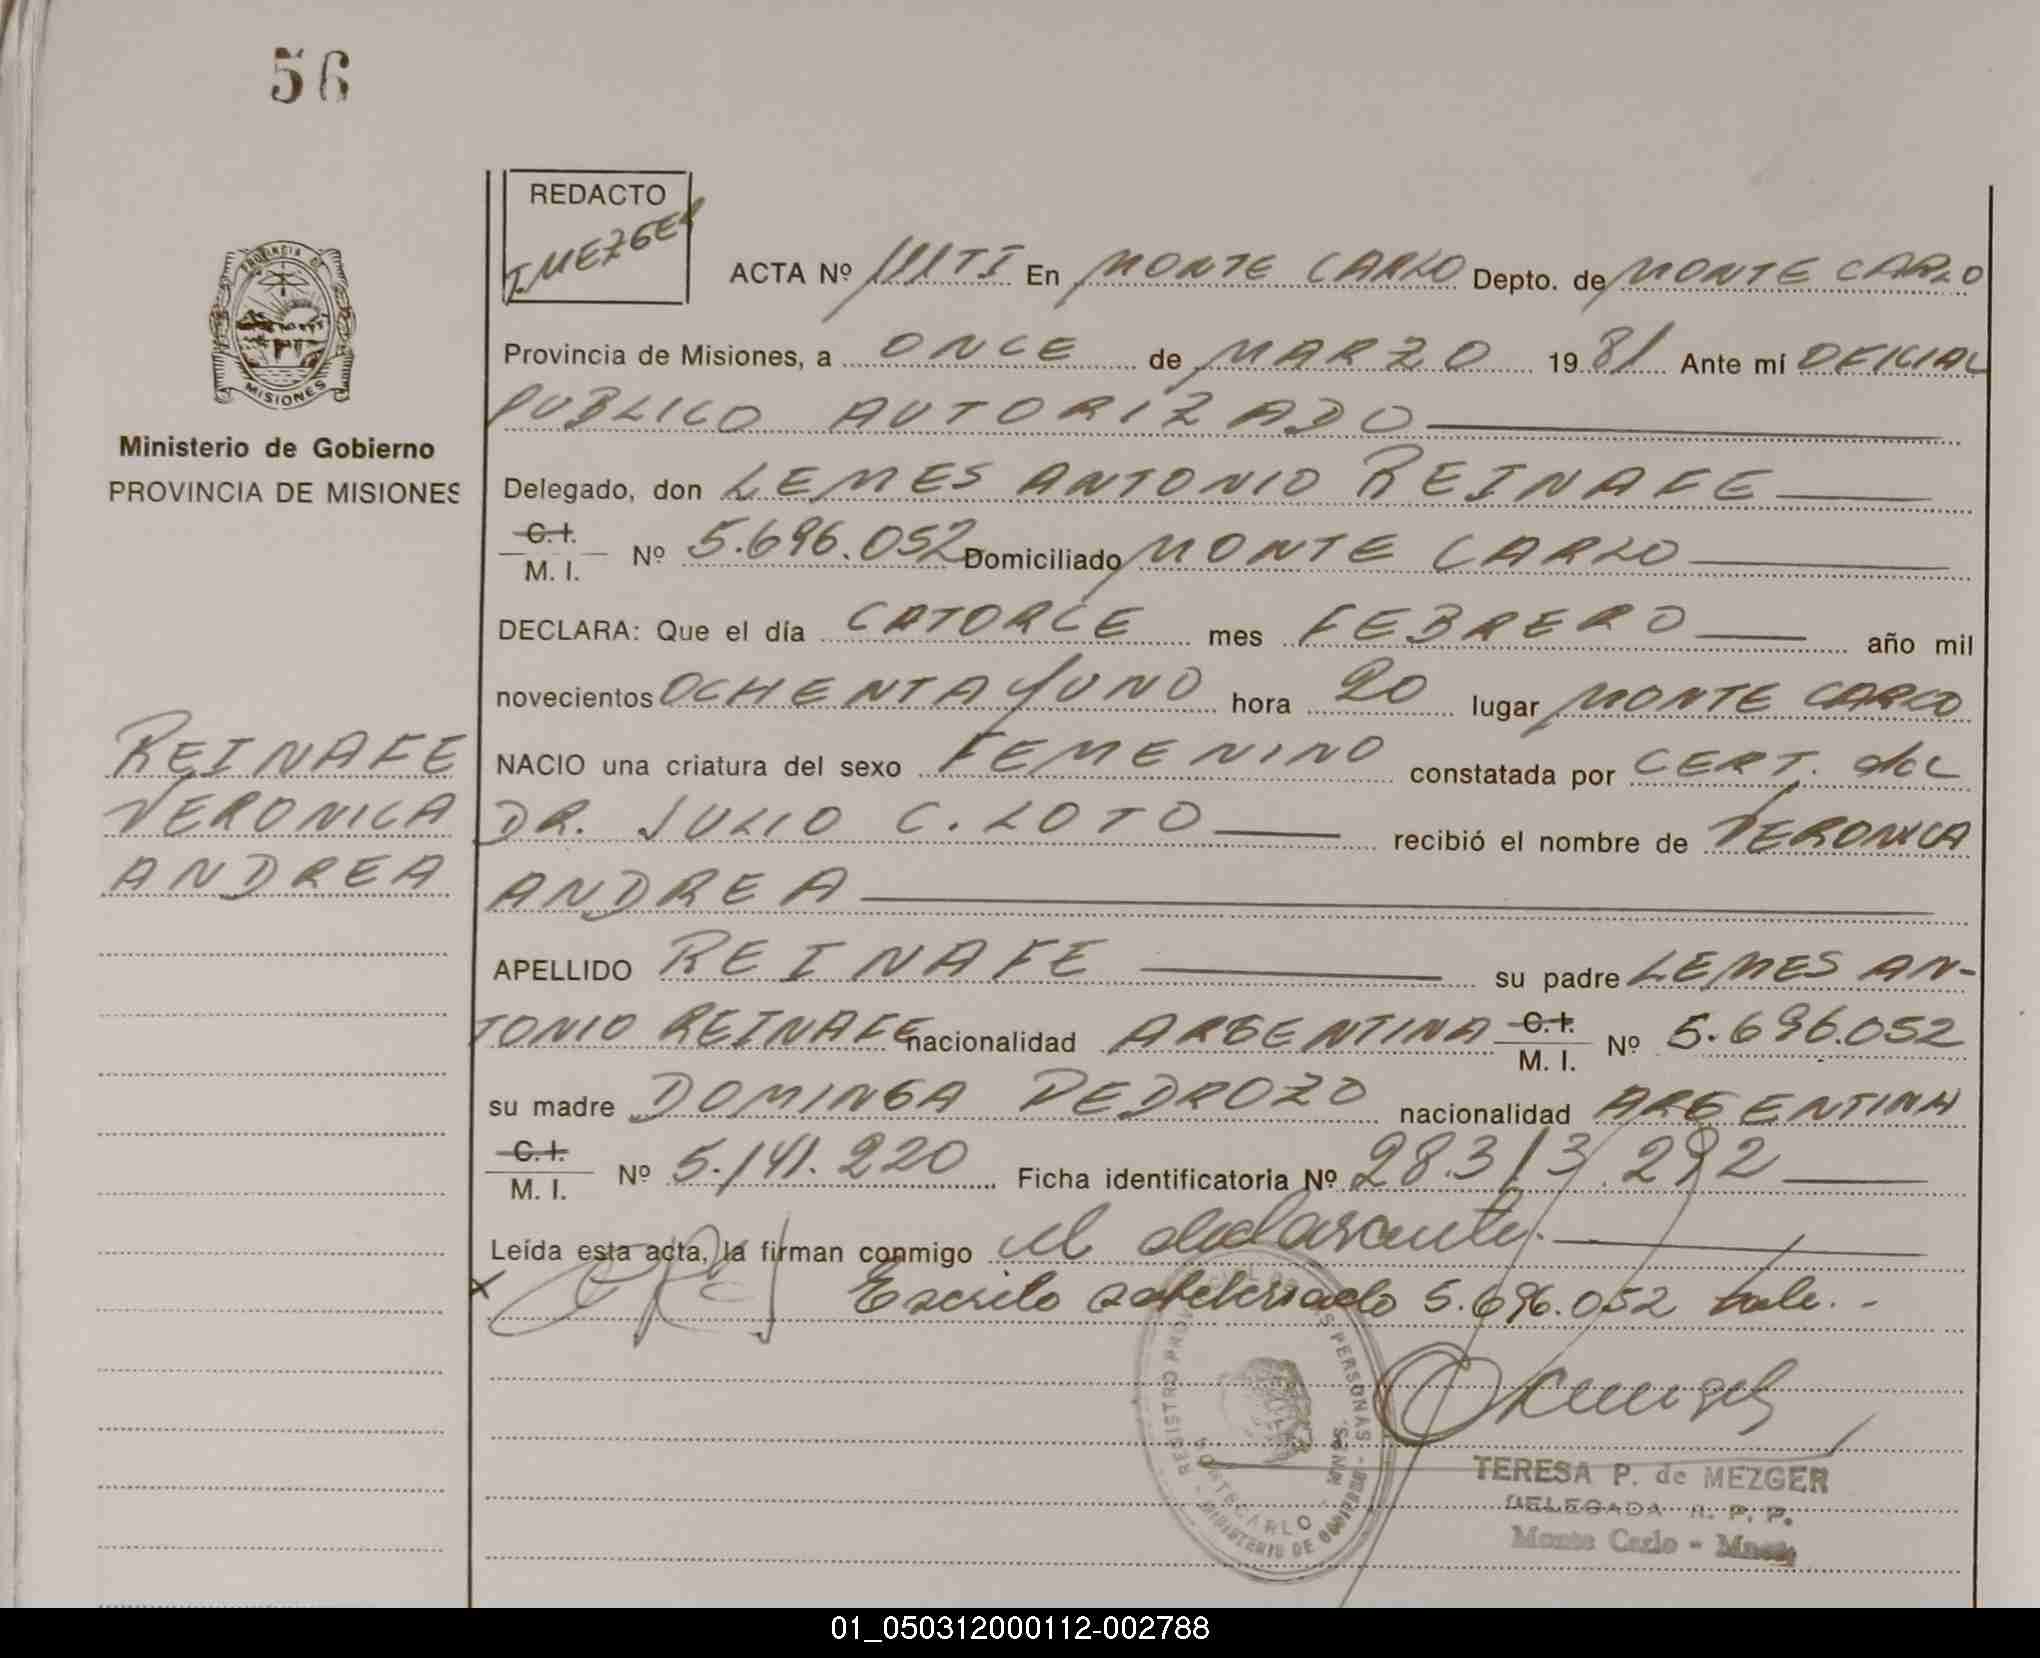 56
REDACTO
T. MEZGER
ACTA Nº En MONTE CARLO Depto. de MONTE CARLO
Provincia de Misiones, a ONCE de MARZO 1981 Ante mí OFICIAL
PUBLICO AUTORIZADO
PROVINCIA DE
MISIONES
Ministerio de Gobierno
PROVINCIA DE MISIONES
Delegado, don LEMES ANTONIO REINAFE
C.I. M. I. Nº 5.696.052 Domiciliado MONTE CARLO
DECLARA: Que el día CATORCE mes FEBRERO año mil
novecientos OCHENTA Y UNO hora 20 lugar MONTE CARLO
REINAFE
VERONICA
ANDREA
NACIO una criatura del sexo FEMENINO constatada por CERT. del
DR. JULIO C. LOTO recibió el nombre de VERONICA
ANDREA
APELLIDO REINAFE su padre LEMES AN-
TONIO REINAFE nacionalidad ARGENTINA C.I. M. I. Nº 5.696.052
su madre DOMINGA PEDROZO nacionalidad ARGENTINA
C.I. M. I. Nº 5.141.220 Ficha identificatoria Nº 283/3.292
Leída esta acta, la firman conmigo el declarante.
x Escrito sobreborrado 5.696.052 vale.-
REGISTRO PERSONAS
MONTECARLO
MINISTERIO DE GOBIERNO
TERESA P. de MEZGER
DELEGADA R. P. P.
Monte Carlo - Mnes
01_050312000112-002788